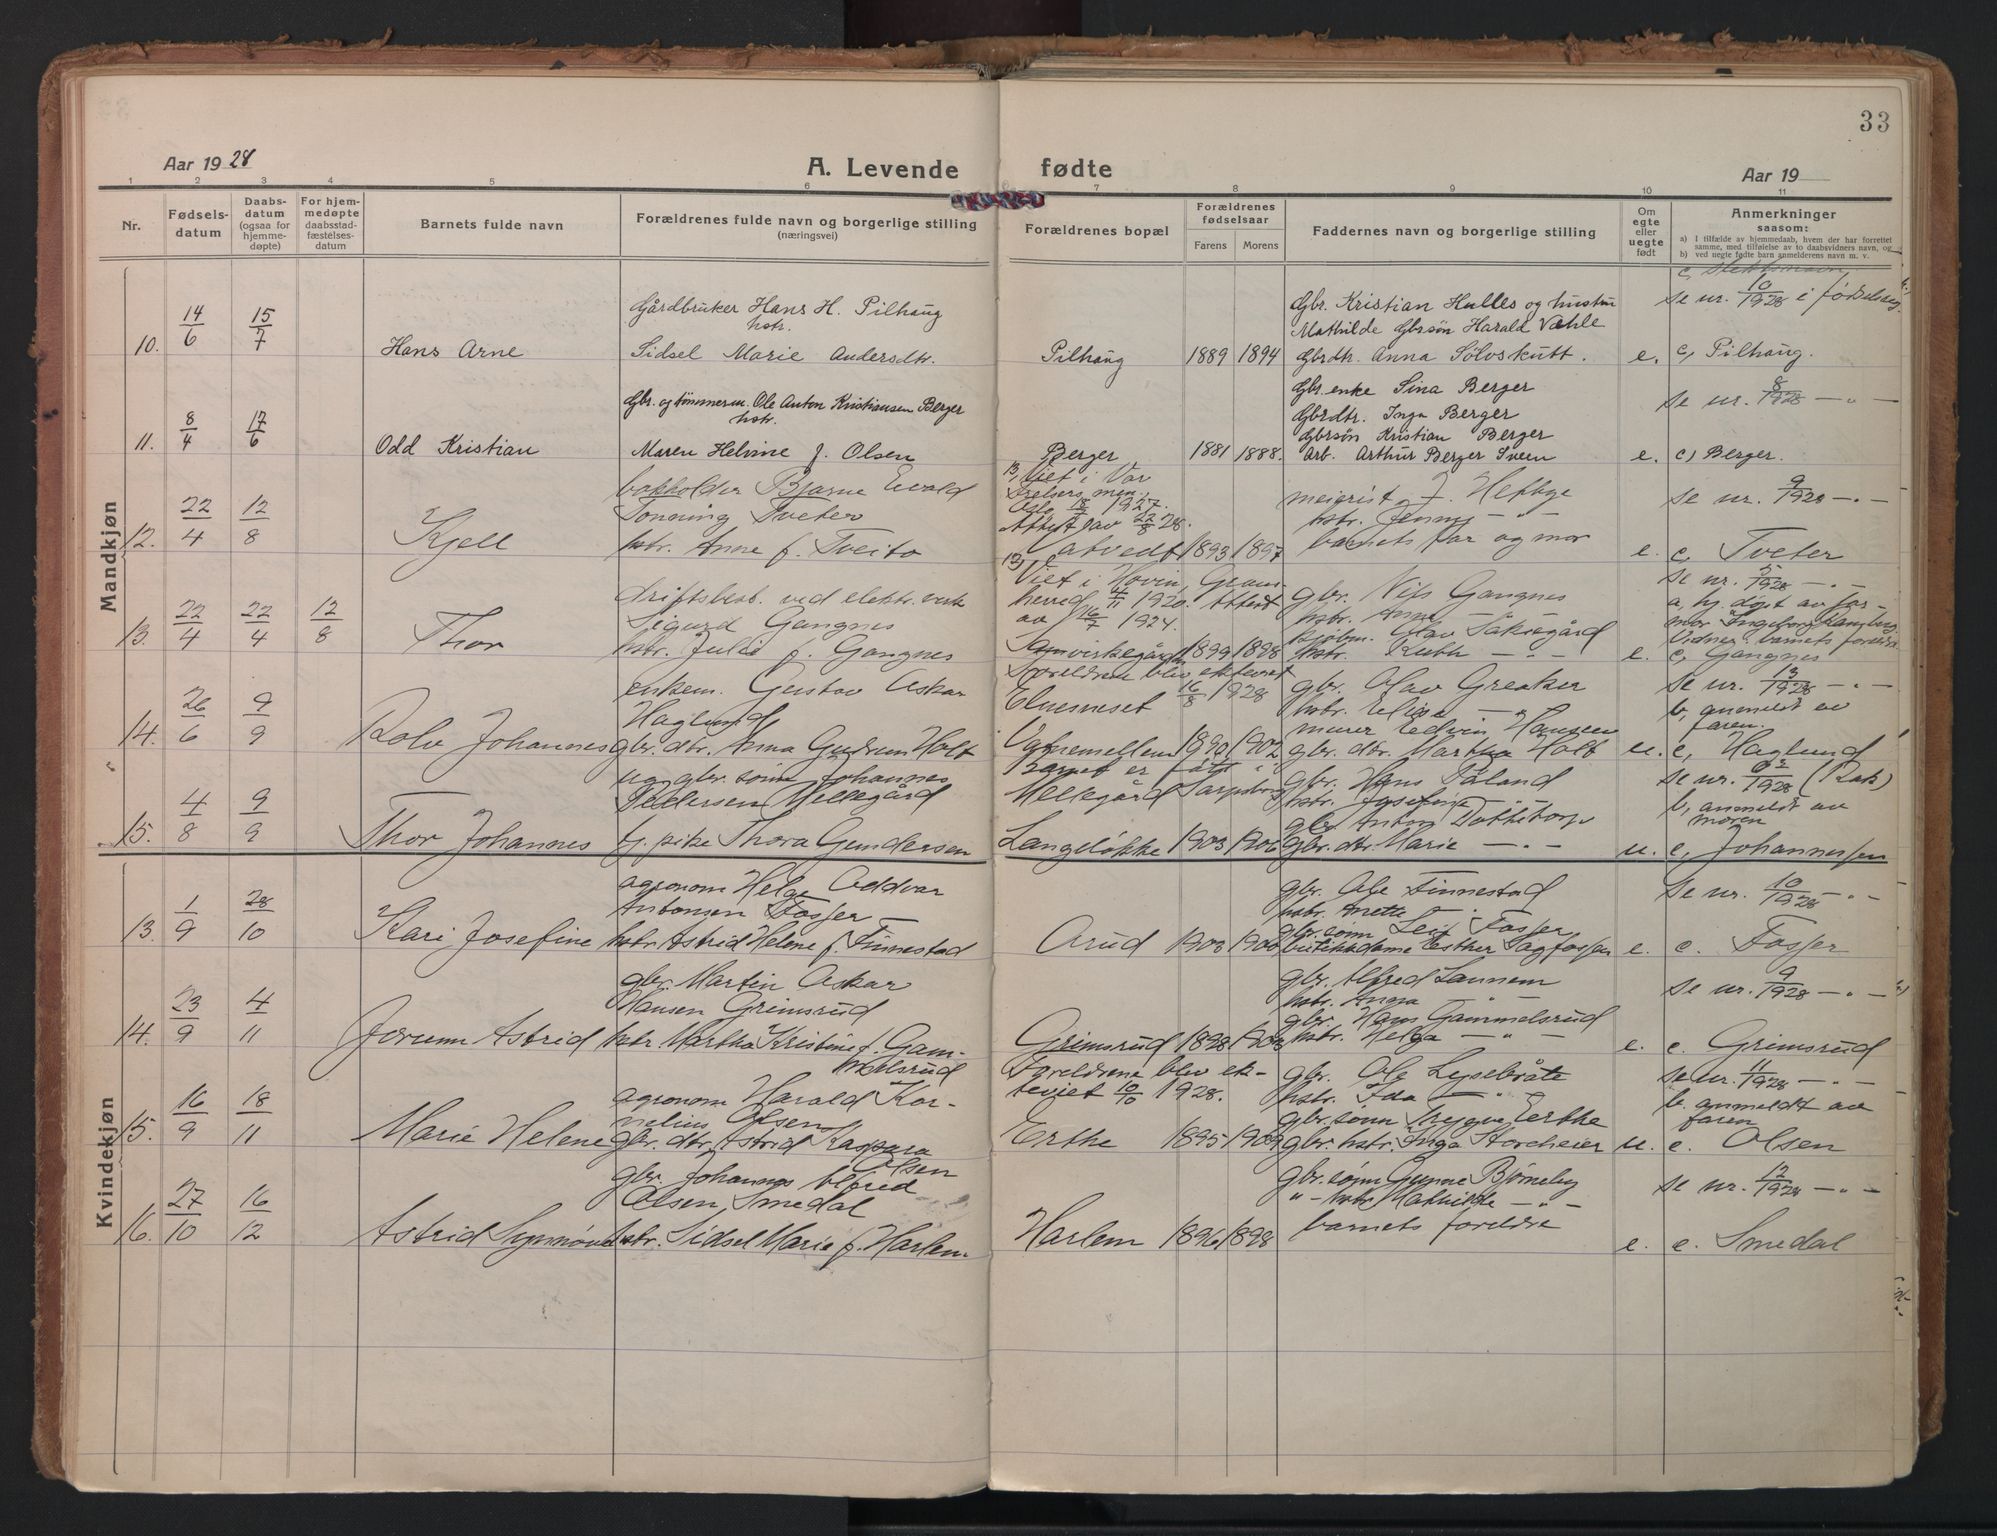 33
Aar 19 28
A. Levende
fødte
Aar 19
1 2 3 4 5 6 7 8 9 10 11
Nr.
Fødsels-
datum
Daabs-
datum
(ogsaa for
hjemme-
døpte)
For hjem-
medøpte
daabsstad-
fæstelses-
datum
Barnets fulde navn
Forældrenes fulde navn og borgerlige stilling
(næringsvei)
Forældrenes bopæl
Forældrenes
fødselsaar
Farens
Morens
Faddernes navn og borgerlige stilling
Om
egte
eller
uegte
født
Anmerkninger
saasom:
a) I tilfælde av hjemmedaab, hvem der har forrettet
samme, med tilføielse av to daabsvidners navn, og
b) ved uegte fødte barn anmelderens navn m. v.
Mandkjøn
10. 14/6 15/7
Hans Arne
Gårdbruker Hans H. Pilhaug
hstr.
Sidsel Marie Andersdtr.
Pilhaug 1889 1894
Gbr. Kristian Hulles og hustru
Mathilde Gbrsøn Harald Væhle
Gbrdtr. Anna Sølvskutt.
e.
Se nr. 10/1928 i fødselsreg.
c, Pilhaug.
11. 8/4 17/6
Odd Kristian
Gbr. og tømmerm. Ole Anton Kristiansen Berger
hstr.
Maren Helvine f. Olsen
Berger 1881 1888.
Gbr. enke Sina Berger
Gbrdtr. Inga Berger
Gbrsøn Kristian Berger
Arb. Arthur Berger Sveen
e.
Se nr. 8/1928 - " -
c) Berger.
12. 22/4 12/8
Kjell
bokholder Bjarne Ewald
Tonning Tveter
hstr. Anne f. Tveito
13, Viet i Vår
Frelsers men.,
Oslo 1927.
Attest av 22/8 28.
Tatvedt 1893 1897
meierist J. Hefbye
hstr. Jenny - " -
barnets far og mor
e.
Se nr. 9/1928 - " -
c, Tveter
13. 22/4 22/4 12/8
Thor
driftsbest. ved elektr. verk
Sigurd Gangnes
hstr. Julie f. Gangnes
13, Viet i Hovin, Grans-
herred 4/11 1920. Attest
av 16/7 1924.
1899 1898
gbr. Nils Gangnes
hstr. Anne
kjøbm. Olav Saksegård
hstr. Ruth - " -
e.
Se nr. 5/1928 - " -
a, hj. døpt av jor-
mor Ingeborg
Vidner barnets foreldre
c, Gangnes
14. 26/6 9/9
Rolv Johannes
Gustav Oskar
Haglund,
gbr. dtr. Anna Gudrun Holt
Foreldrene blev ekteviet
Elnesneset 16/8 1928
1890 1902
gbr. Olav Greaker
hstr. Elise - " -
murer Edvin Hansen
gbr. dtr. Martha Holt
u.
Se nr. 13/1928 - " -
b, anmeldt av
faren.
c, Haglund
15. 4/8 9/9
Thor Johannes
ug. gbr. sønn Johannes
Pettersen Mellegård
tj. pike Thora Gundersen
Barnet er født i
Mellegård Sarpsborg
Langeløkke 1903 1906
gbr. Hans Tåland
hstr. Josefine - " -
gbr. Anton Tøttetorp
gbr. dtr. Marie - " -
u.
Se nr. 1928 (Rak.)
b, anmeldt av
moren
c, Johannessen
Kvindekjøn
13. 1/9 28/10
Kari Josefine
agronom Helge Oddvar
Antonsen Fosser
hstr. Astrid Helene f. Finnestad
Orud 1903 1900
gbr. Ole Finnestad
hstr. Anette - " -
gbr. sønn Leif Fosser
butikkdame Esther Sagfossen
e.
Se nr. 10/1928 - " -
c. Fosser
14. 23/9 4/11
Jorunn Astrid
gbr. Martin Oskar
Hansen Grimsrud
hstr. Martha Kristine f. Gam-
melsrud
Grimsrud 1898 1903
gbr. Alfred Lannem
hstr. Anna - " -
gbr. Hans Gammelsrud
hstr. Helga - " -
e.
Se nr. 9/1928 - " -
c. Grimsrud
15. 16/9 18/11
Marie Helene
agronom Harald Kor-
nelius Olsen
gbr. dtr. Astrid Kaspara
Olsen
Foreldrene blev ek-
teviet 10/10 1928.
Erthe 1895 1909
gbr. Ole Lysebråte
hstr. Ida - " -
gbr. sønn Trygve Eerthe
gbr. hstr. Inga Storeheier
u.
Se nr. 11/1928 - " -
b. anmeldt av
faren
c. Olsen
16. 27/10 16/12
Astrid Synnøve
gbr. Johannes Alfred
Olsen Smedal
hstr. Sidsel Marie f. Harlem
Harlem 1896 1898
gbr. sønn Gunne Bjørneby
" - hstr. Mathilde - " -
barnets foreldre
e.
Se nr. 12/1928 - " -
c. Smedal